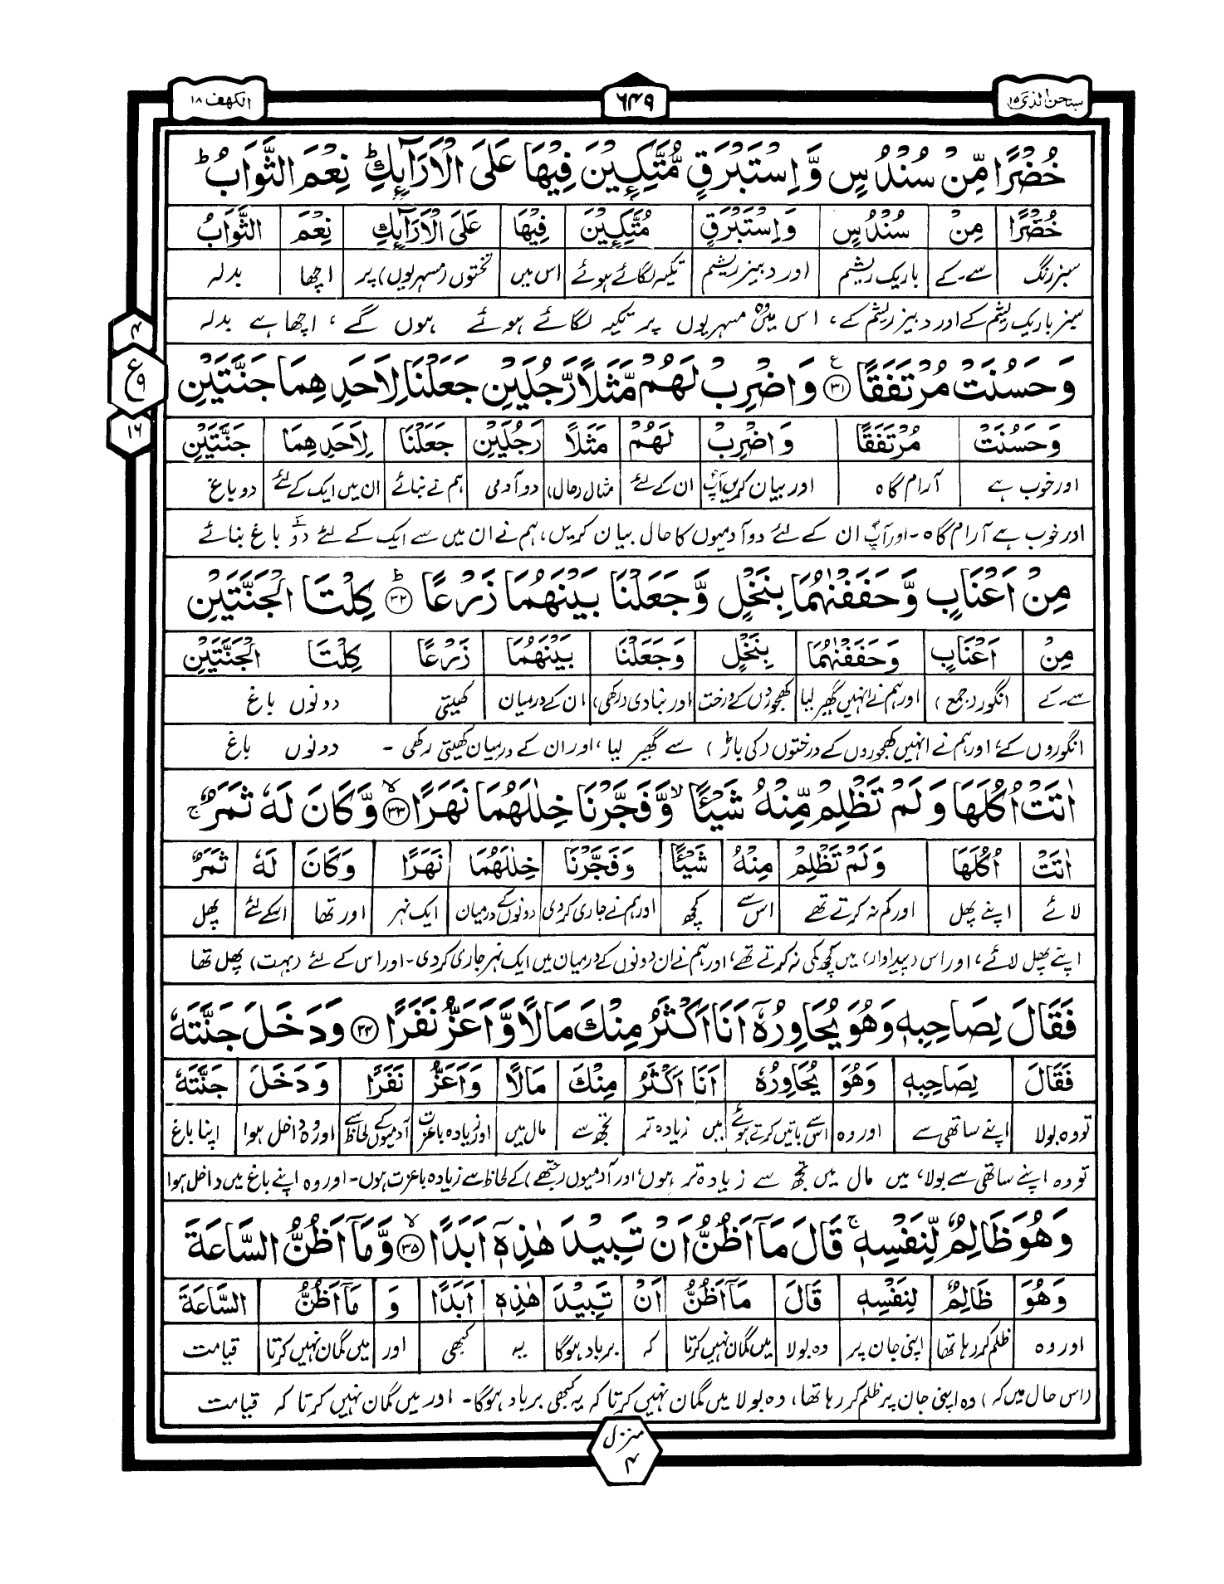 سبحٰن الذی ۱۵
۶۴۹
الکھف ۱۸
خُضْرًا مِّنْ سُنْدُسٍ وَّ اِسْتَبْرَقٍ مُّتَّكِـِٕیْنَ فِیْهَا عَلَی الْاَرَآىِٕكِ ؕ نِعْمَ الثَّوَابُ ؕ
خُضْرًا مِنْ سُنْدُسٍ وَاِسْتَبْرَقٍ مُتَّكِـِٕیْنَ فِیْهَا عَلَی الْاَرَآىِٕكِ نِعْمَ الثَّوَابُ
سبز رنگ سے۔ کے باریک ریشم اور دبیز ریشم تکیہ لگائے ہوئے اس میں تختوں (مسہریوں) پر اچھا بدلہ
سبز باریک ریشم کے اور دبیز ریشم کے، اس میں وہ مسہریوں پر تکیہ لگائے ہوئے ہوں گے، اچھا ہے بدلہ
۴
ع
۹
۱۶
وَ حَسُنَتْ مُرْتَفَقًا ۳۱ ع وَ اضْرِبْ لَهُمْ مَّثَلًا رَّجُلَیْنِ جَعَلْنَا لِاَحَدِهِمَا جَنَّتَیْنِ
وَحَسُنَتْ مُرْتَفَقًا وَاضْرِبْ لَهُمْ مَثَلًا رَجُلَیْنِ جَعَلْنَا لِاَحَدِهِمَا جَنَّتَیْنِ
اور خوب ہے آرام گاہ اور بیان کریں آپؐ ان کے لئے مثال (حال) دو آدمی ہم نے بنائے ان میں ایک کے لئے دو باغ
اور خوب ہے آرام گاہ۔ اور آپؐ ان کے لئے دو آدمیوں کا حال بیان کریں، ہم نے ان میں سے ایک کے لئے دو باغ بنائے
مِنْ اَعْنَابٍ وَّ حَفَفْنٰهُمَا بِنَخْلٍ وَّ جَعَلْنَا بَیْنَهُمَا زَرْعًا ؕ ۳۲ كِلْتَا الْجَنَّتَیْنِ
مِنْ اَعْنَابٍ وَحَفَفْنٰهُمَا بِنَخْلٍ وَجَعَلْنَا بَیْنَهُمَا زَرْعًا كِلْتَا الْجَنَّتَیْنِ
سے۔ کے انگور (جمع) اور ہم نے انہیں گھیر لیا کھجوروں کے درخت اور بنا دی (رکھی) ان کے درمیان کھیتی دونوں باغ
انگوروں کے، اور ہم نے انہیں کھجوروں کے درختوں (کی باڑ) سے گھیر لیا، اور ان کے درمیان کھیتی رکھی۔ دونوں باغ
اٰتَتْ اُكُلَهَا وَ لَمْ تَظْلِمْ مِّنْهُ شَیْـًٔا ۙ وَّ فَجَّرْنَا خِلٰلَهُمَا نَهَرًا ۙ ۳۳ وَّ كَانَ لَهٗ ثَمَرٌ ۚ
اٰتَتْ اُكُلَهَا وَلَمْ تَظْلِمْ مِنْهُ شَیْـًٔا وَفَجَّرْنَا خِلٰلَهُمَا نَهَرًا وَكَانَ لَهٗ ثَمَرٌ
لائے اپنے پھل اور کم نہ کرتے تھے اس سے کچھ اور ہم نے جاری کر دی دونوں کے درمیان ایک نہر اور تھا اسکے لئے پھل
اپنے پھل لائے، اور اس (پیداوار) میں کچھ کمی نہ کرتے تھے، اور ہم نے ان دونوں کے درمیان میں ایک نہر جاری کر دی۔ اور اس کے لئے (بہت) پھل تھا
فَقَالَ لِصَاحِبِهٖ وَ هُوَ یُحَاوِرُهٗۤ اَنَا اَكْثَرُ مِنْكَ مَالًا وَّ اَعَزُّ نَفَرًا ۳۴ وَ دَخَلَ جَنَّتَهٗ
فَقَالَ لِصَاحِبِهٖ وَهُوَ یُحَاوِرُهٗ اَنَا اَكْثَرُ مِنْكَ مَالًا وَاَعَزُّ نَفَرًا وَدَخَلَ جَنَّتَهٗ
تو وہ بولا اپنے ساتھی سے اور وہ اس سے باتیں کرتے ہوئے میں زیادہ تر تجھ سے مال میں اور زیادہ باعزت آدمیوں کے لحاظ سے اور وہ داخل ہوا اپنا باغ
تو وہ اپنے ساتھی سے بولا، میں مال میں تجھ سے زیادہ تر ہوں، اور آدمیوں (جتھے) کے لحاظ سے زیادہ باعزت ہوں۔ اور وہ اپنے باغ میں داخل ہوا
وَ هُوَ ظَالِمٌ لِّنَفْسِهٖ ۚ قَالَ مَاۤ اَظُنُّ اَنْ تَبِیْدَ هٰذِهٖۤ اَبَدًا ۙ ۳۵ وَّ مَاۤ اَظُنُّ السَّاعَةَ
وَهُوَ ظَالِمٌ لِنَفْسِهٖ قَالَ مَاۤ اَظُنُّ اَنْ تَبِیْدَ هٰذِهٖ اَبَدًا وَ مَاۤ اَظُنُّ السَّاعَةَ
اور وہ ظلم کر رہا تھا اپنی جان پر وہ بولا میں گمان نہیں کرتا کہ برباد ہوگا یہ کبھی اور میں گمان نہیں کرتا قیامت
(اس حال میں کہ) وہ اپنی جان پر ظلم کر رہا تھا، وہ بولا میں گمان نہیں کرتا کہ یہ کبھی برباد ہوگا۔ اور میں گمان نہیں کرتا کہ قیامت
منزل ۴